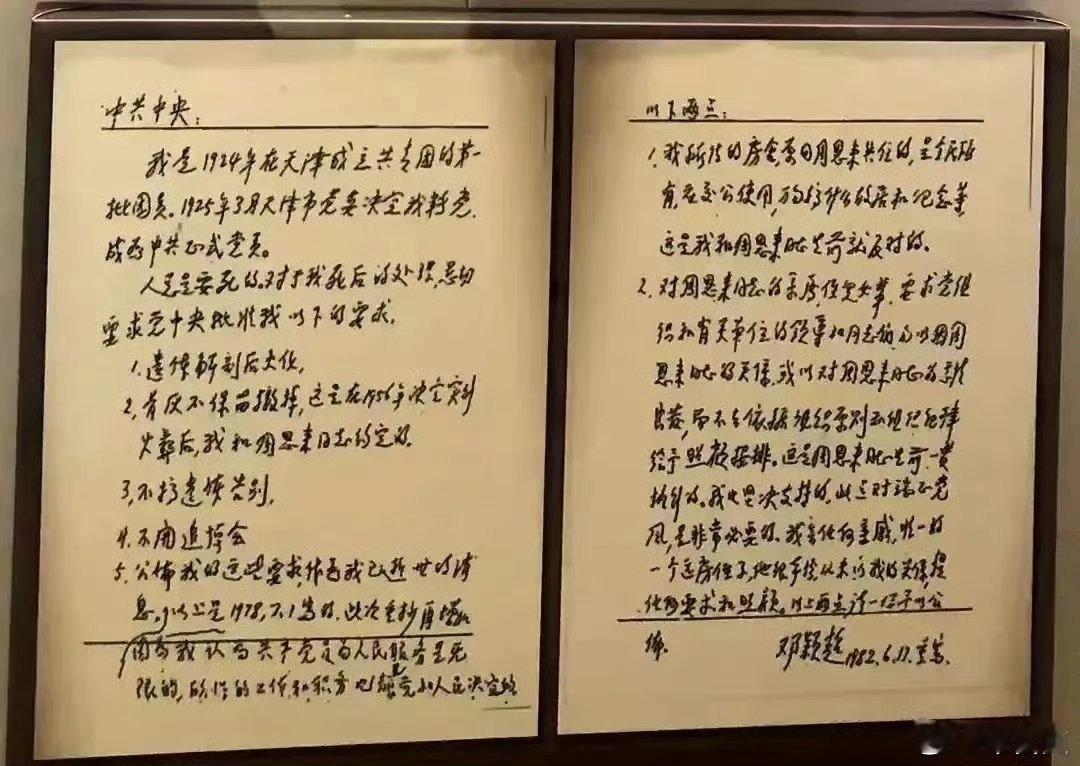 中共中央：
我是1924年在天津成立共青团的第一
批团员。1925年3月天津市党委决定我转党，
成为中共正式党员。
人总是要死的。对于我死后的处理，恳切
要求党中央批准我以下的要求。
1.遗体解剖后火化。
2.骨灰不保留撒掉，这是在1956年决定实行
火葬后，我和周恩来同志约定的。
3.不搞遗体告别。
4.不开追悼会
5.公佈我的这些要求，作为我已逝世的消
息。以上是1978.7.1写的。此次重抄再增加
因为我认为共产党员为人民服务是无
限的，所作的工作和职务也都是党和人民决定的
以下两点：
1.我所住的房舍，原同周恩来共住的，是全民所
有，应交公使用，万勿搞什么故居和纪念等
这是我和周恩来同志生前就反对的。
2.对周恩来同志的亲属侄儿女辈，要求党组
织和有关单位的领导和同志们，勿以因周
恩来同志的关系，或以对周恩来同志的感情
出发，而不去依据组织原则和组织纪律
给予照顾安排。这是周恩来同志生前一贯
执行的。我也坚决支持的，此点对端正党
风，是非常必要的。我无任何亲戚，唯一的
一个远房侄子，他很本分，从未以我的关系提
任何要求和照顾。以上两点请一併予以公
佈。
邓颖超 1982.6.17.重写。